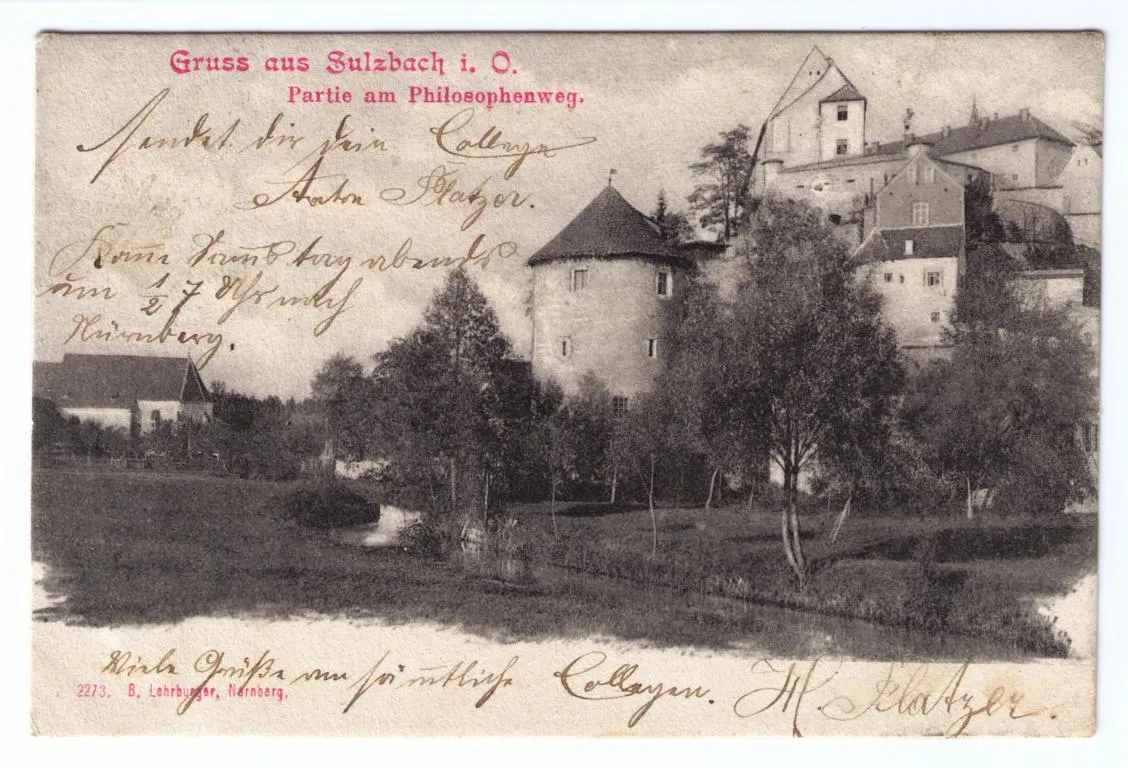 Gruss aus Sulzbach i. O.
Partie am Philosophenweg.
sendet dir dein College
Anton Platzer.
Kom̅e Sam̅stag abends
um ½ 7 Uhr nach
Nürnberg.
Viele Grüße an säm̅tliche Collegen. Platzer.
2273. B. Lehrburger, Nürnberg.